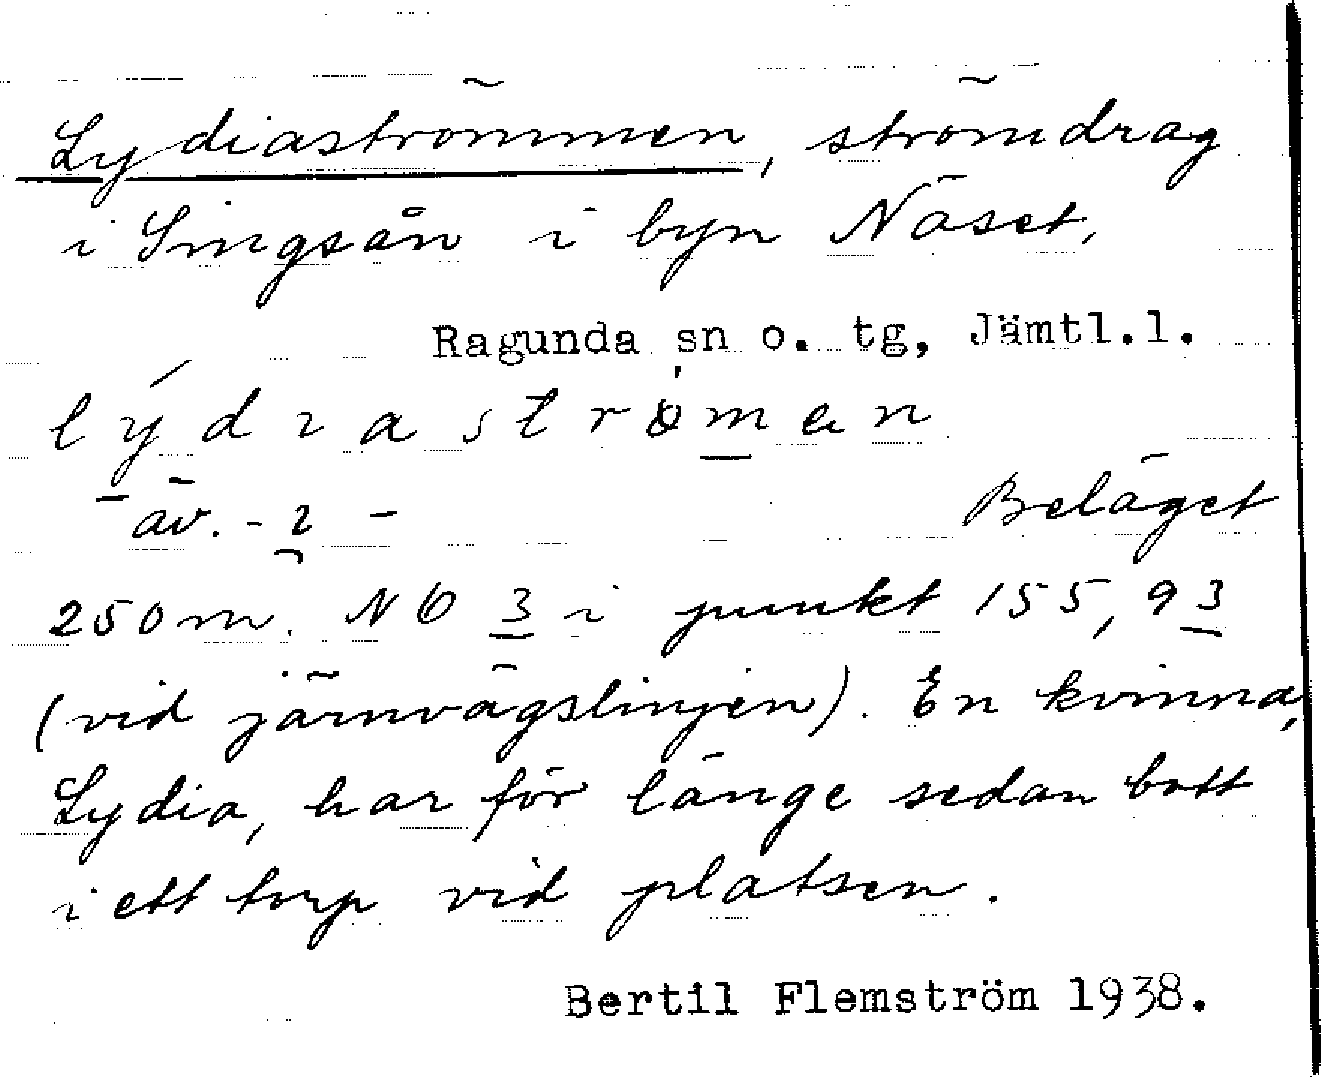 Lydiaströmmen, strömdrag
i Singsån i byn Näset,
Ragunda sn o. tg, Jämtl.l.
lýdiaströmen
äv. - i -
Beläget
250 m. NÖ 3 i punkt 155,93
(vid järnvägslinjen). En kvinna,
Lydia, har för länge sedan bott
i ett torp vid platsen.
Bertil Flemström 1938.